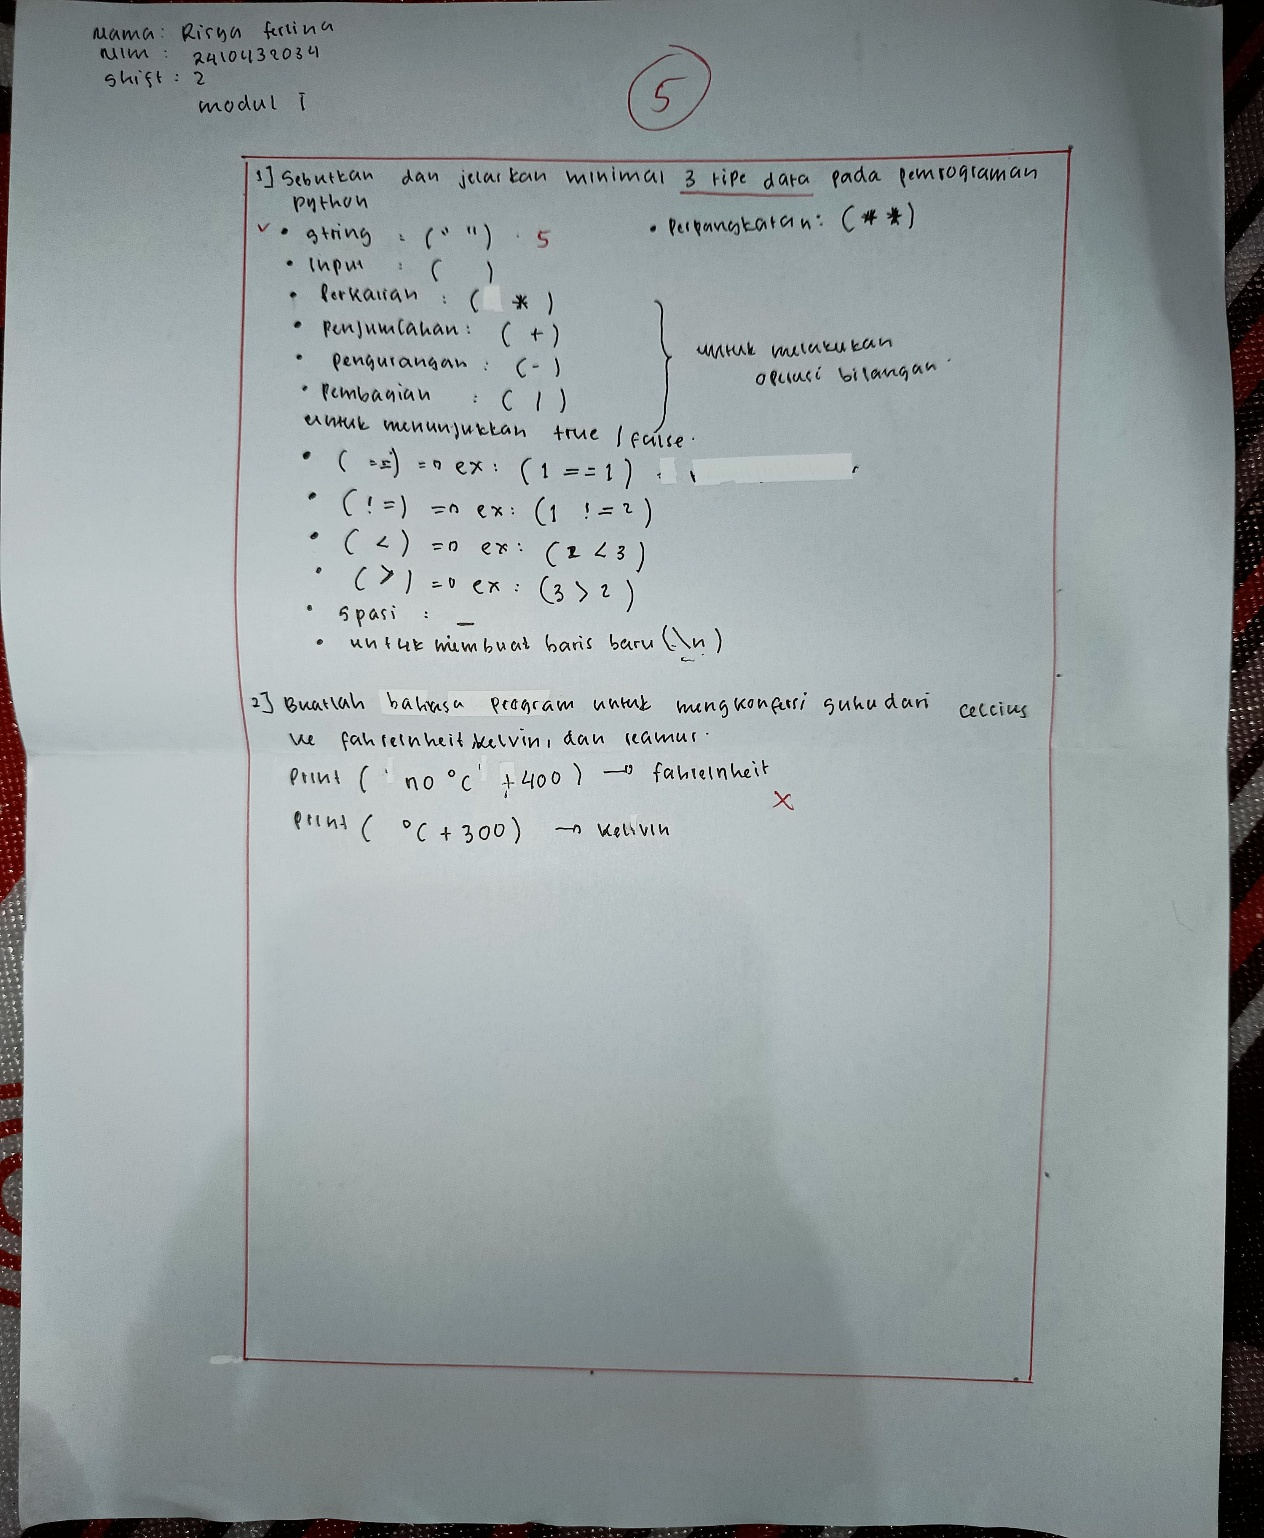 Nama: Risya ferlina
NIM : 2410432034
shift : 2
modul I
5
1] Sebutkan dan jelaskan minimal 3 tipe data pada pemrograman
python
• string : (" ") 5
• Perpangkatan: (**)
• Input : ( )
• Perkalian : ( * )
• penjumlahan: ( + )
• pengurangan : (-)
• Pembagian : ( / )
untuk melakukan
operasi bilangan
untuk menunjukkan true / false.
• ( ==) => ex: (1 ==1)
• (!=) => ex: (1 !=2)
• ( <) => ex: (2 <3)
• (>) => ex: (3 > 2)
• spasi : _
• untuk membuat baris baru (\n)
2] Buatlah bahasa program untuk mengkonfersi suhu dari celcius
ke fahreinheit kelvin, dan reamur.
Print ( ' no °C' +400) → fahreinheit
Print ( °C + 300) → kelivin